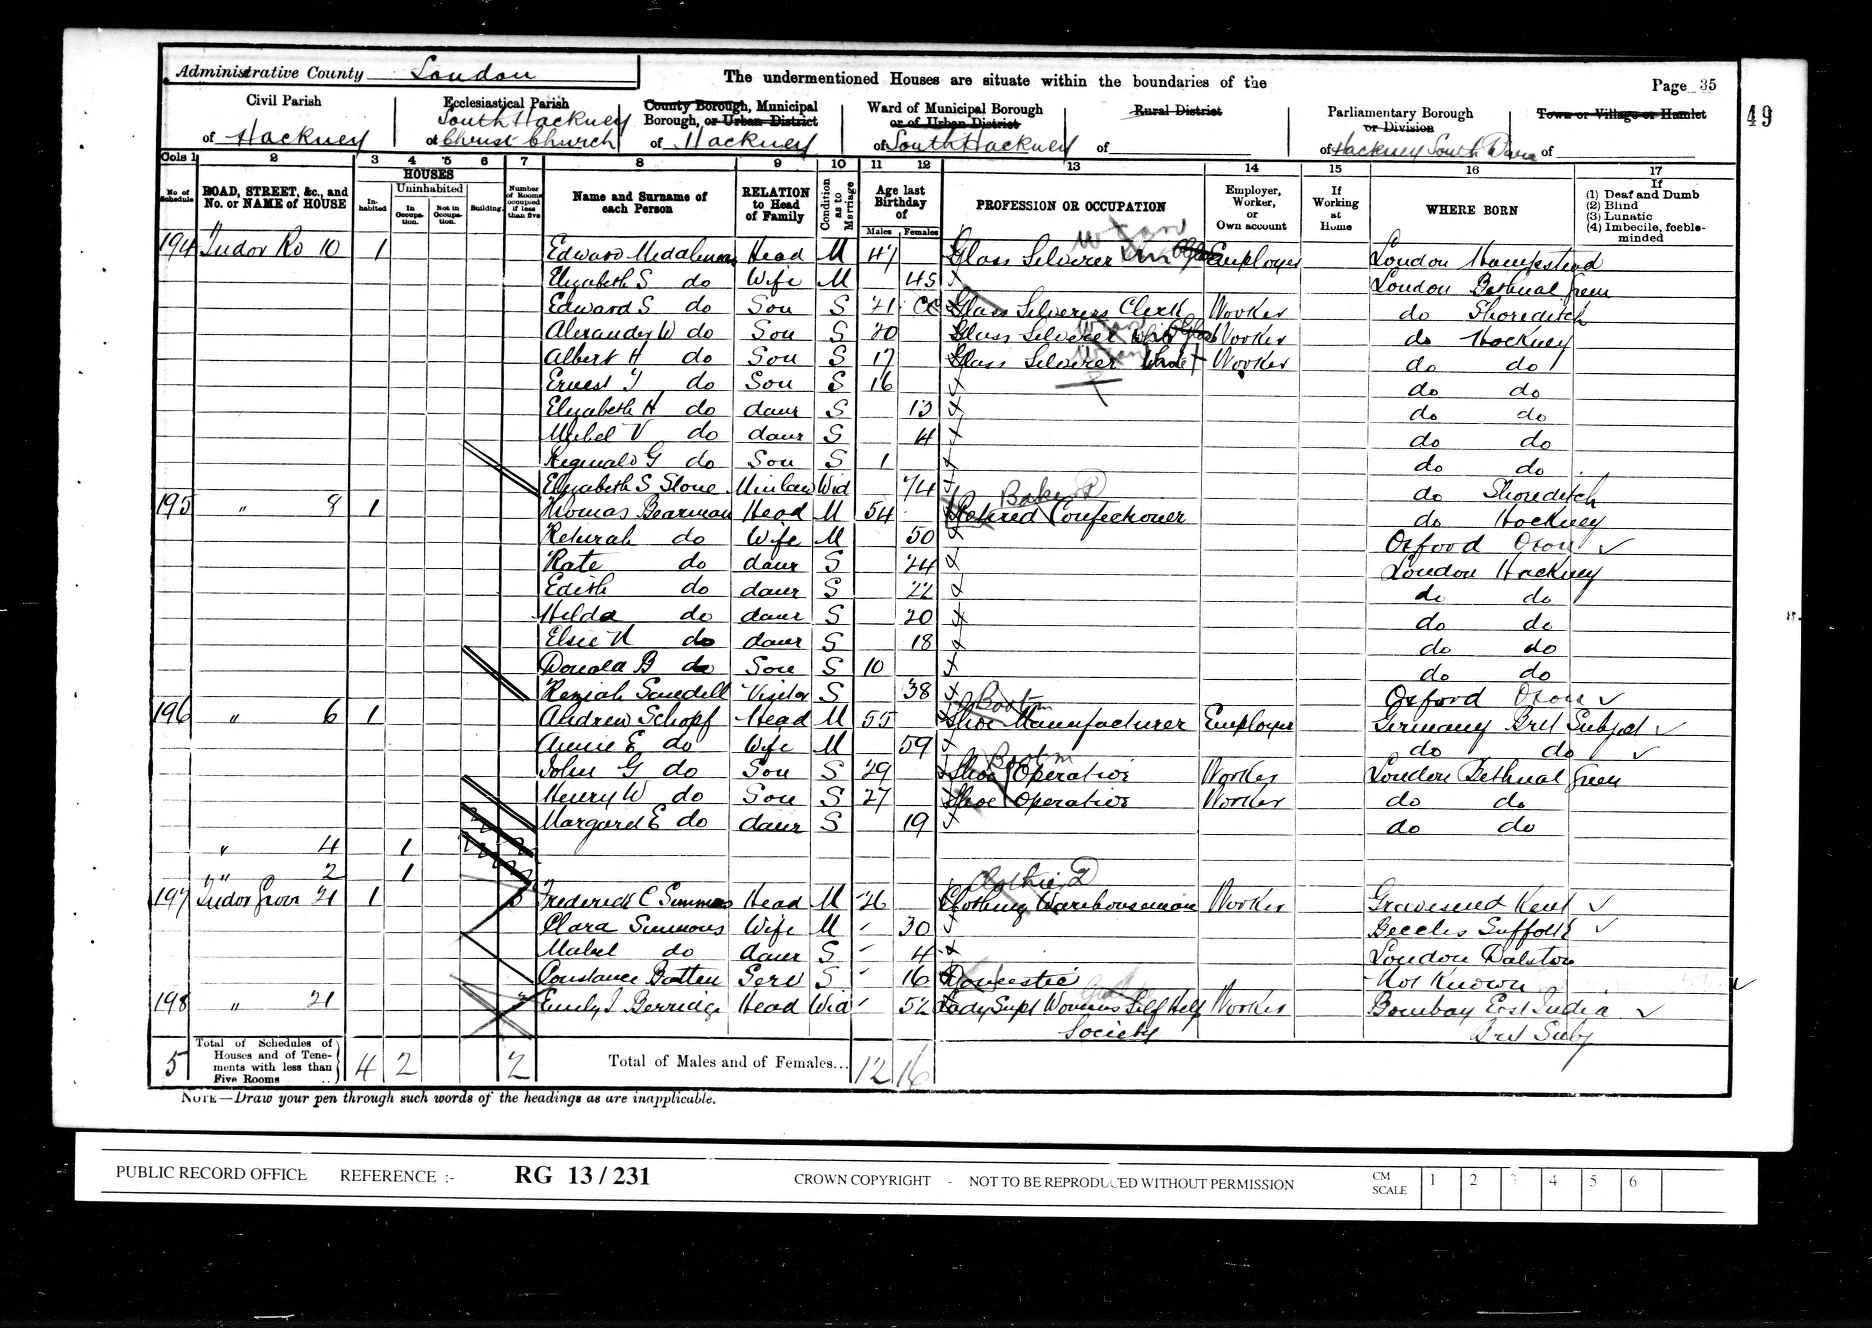 Administrative County London
The undermentioned Houses are situate within the boundaries of the
Page 35
49
Civil Parish
of Hackney
Ecclesiastical Parish
of South Hackney Christ Church
County Borough, Municipal Borough, or Urban District
of Hackney
Ward of Municipal Borough or of Urban District
of South Hackney
Rural District
of
Parliamentary Borough or Division
of Hackney South
Town or Village or Hamlet
of
Cols 1 2 3 4 5 6 7 8 9 10 11 12 13 14 15 16 17
No of Schedule
ROAD, STREET, &c., and No. or NAME of HOUSE
HOUSES
Inhabited
Uninhabited
In Occupation.
Not in Occupation.
Building.
Number of Rooms occupied if less than five
Name and Surname of each Person
RELATION to Head of Family
Condition as to Marriage
Age last Birthday of
Males Females
PROFESSION OR OCCUPATION
Employer, Worker, or Own account
If Working at Home
WHERE BORN
If
(1) Deaf and Dumb
(2) Blind
(3) Lunatic
(4) Imbecile, feeble-minded
194 Tudor Rd 10 1 Edward Head M 47 Glass Silverer Employer London Hampstead
Elizabeth S do Wife M 45 London Bethnal Green
Edward S do Son S 21 Glass Silverers Clerk Worker do Shoreditch
Alexander W do Son S 20 Glass Silverer Worker do Hackney
Albert H do Son S 17 Glass Silverer Worker do do
Ernest do Son S 16 do do
Elizabeth H do daur S 13 do do
Mabel V do daur S 4 do do
Reginald G do Son S 1 do do
Elizabeth S Stone Minlaw Wid 74 do Shoreditch
195 " 8 1 Thomas Bearman Head M 54 Retired Confectioner Baker do Hackney
Keturah do Wife M 50 Oxford Oxon
Kate do daur S 24 London Hackney
Edith do daur S 22 do do
Hilda do daur S 20 do do
Elsie do daur S 18 do do
Donald B do Son S 10 do do
Keziah Saudell Visitor S 38 Oxford Oxon
196 " 6 1 Andrew Schopf Head M 55 Boot m Shoe Manufacturer Employer Germany Brit Subject
Annie E do Wife M 59 do do
John G do Son S 29 Boot m Shoe Operative Worker London Bethnal Green
Henry W do Son S 27 Shoe Operative Worker do do
Margaret E do daur S 19 do do
" 4 1
" 2 1
197 Tudor Grove 21 1 Frederick C Simmons Head M 26 Clothing Warehouseman Worker Gravesend Kent
Clara Simmons Wife M 30 Beccles Suffolk
Mabel do daur S 4 London Dalston
Constance Batten Serv S 16 Domestic Not Known
198 " 21 Emily J Berridge Head Wid 52 Lady Supt Womens Self Help Society Worker Bombay East India Brit Subj
5 Total of Schedules of Houses and of Tenements with less than Five Rooms 4 2 2 Total of Males and of Females... 12 16
NOTE—Draw your pen through such words of the headings as are inapplicable.
PUBLIC RECORD OFFICE REFERENCE :- RG 13/231 CROWN COPYRIGHT - NOT TO BE REPRODUCED WITHOUT PERMISSION CM SCALE 1 2 3 4 5 6